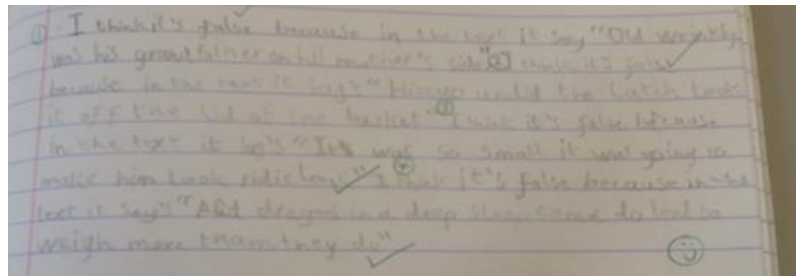 ① I think it's false because in the text it say "Old Wrinkly
was his grandfather on his mother's side" ② think it's false
because in the text it say's " undid the latch took
it off the lid of the basket" ③ I think it's false because
in the text it say's "It was so small it was going to
make him look ridiclous" ④ I think it's false because in the
text it say's "And dragons in a deep sleep to
weigh more than they do"